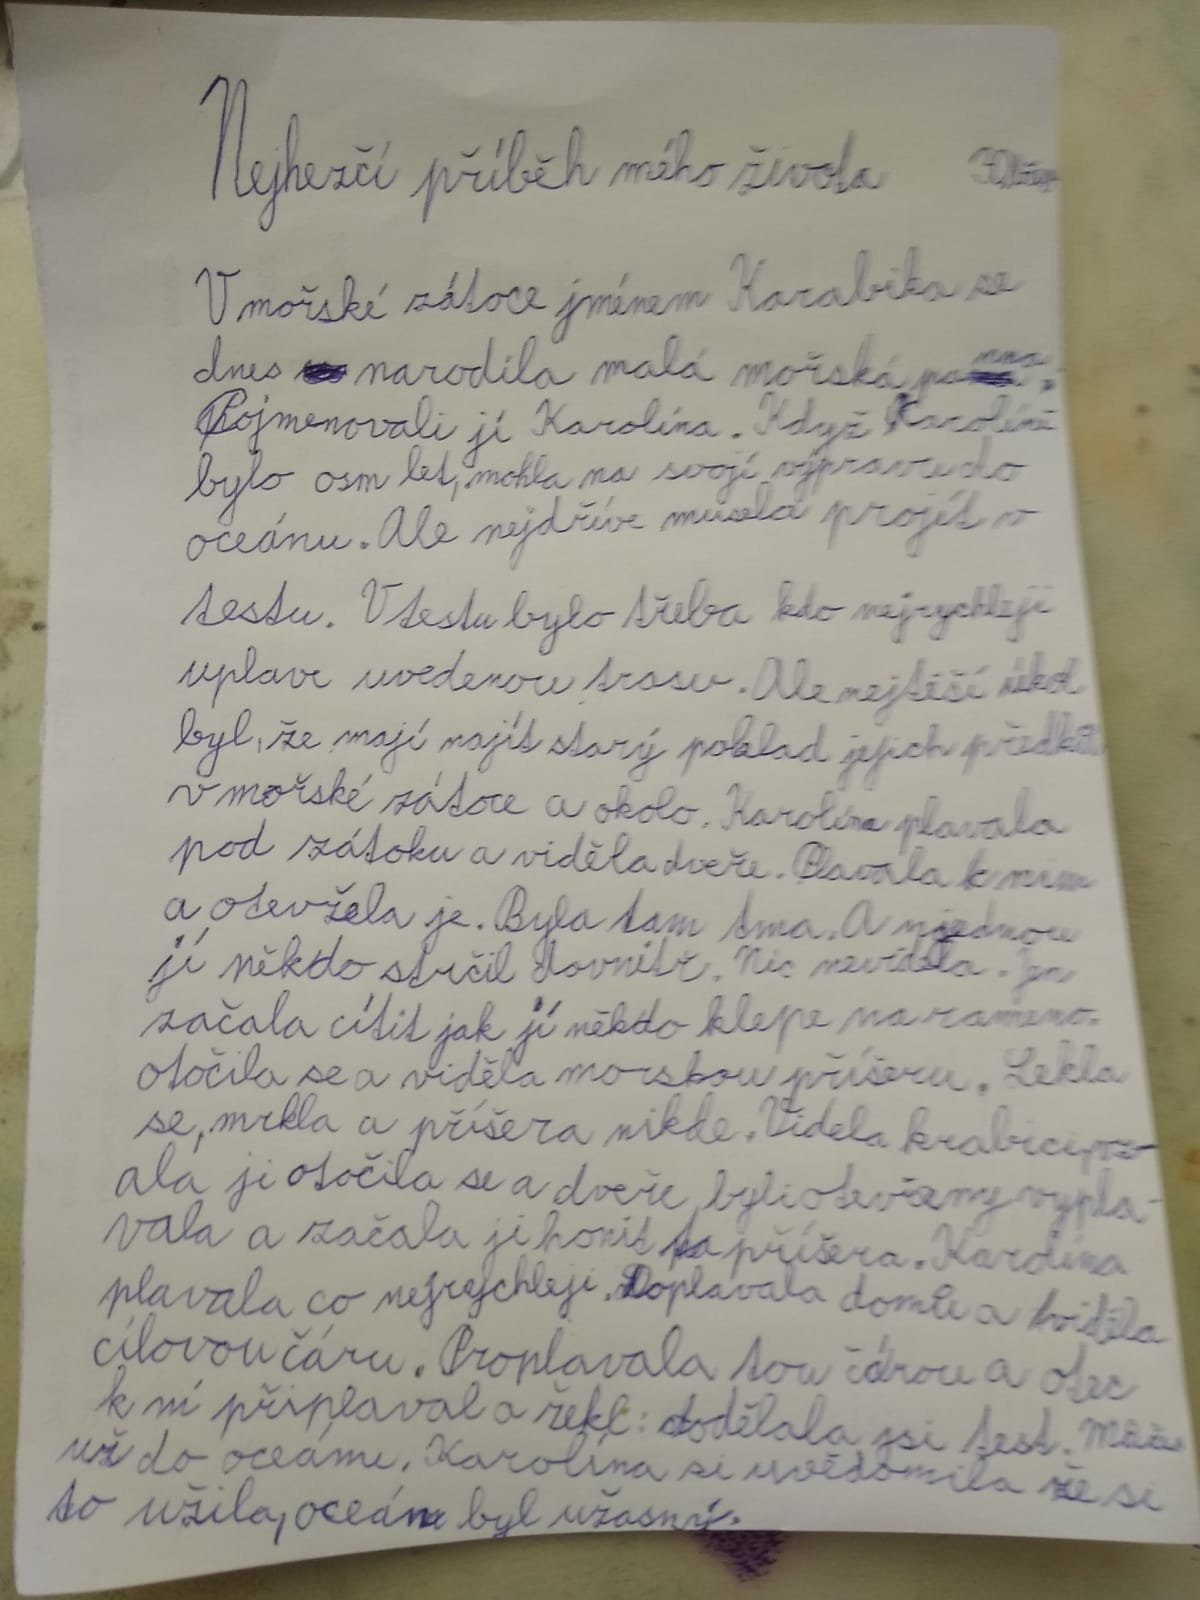 Nejhezčí příběh mého života
V mořské zátoce jménem Karabika se
dnes narodila malá mořská panna.
Pojmenovali jí Karolína. Když Karolíně
bylo osm let, mohla na svojí výpravu do
oceánu. Ale nejdříve musela projít v
testu. V testu bylo třeba kdo nejrychleji
uplave uvedenou trasu. Ale nejtěší úkol
byl, že mají najít starý poklad jejich předků
v mořské zátoce a okolo. Karolína plavala
pod zátoku a viděla dveře. Plavala k nim
a otevžela je. Byla tam tma. A najednou
jí někdo strčil dovnitř. Nic neviděla. Jen
začala cítit jak jí někdo klepe na rameno.
otočila se a viděla morskou příšeru. Lekla
se, mrkla a příšera nikde. Videla krabici,
ala ji otočila se a dveře byli otevřeny vypla-
vala a začala ji honit ta příšera. Karolína
plavala co nejrychleji. Doplavala domů a viděla
cílovou čáru. Proplavala tou čárou a otec
k ní připlaval a řekl: dodělala jsi test. Můžeš
už do oceánu. Karolína si uvědomila že si
to užila, oceán byl užasný.